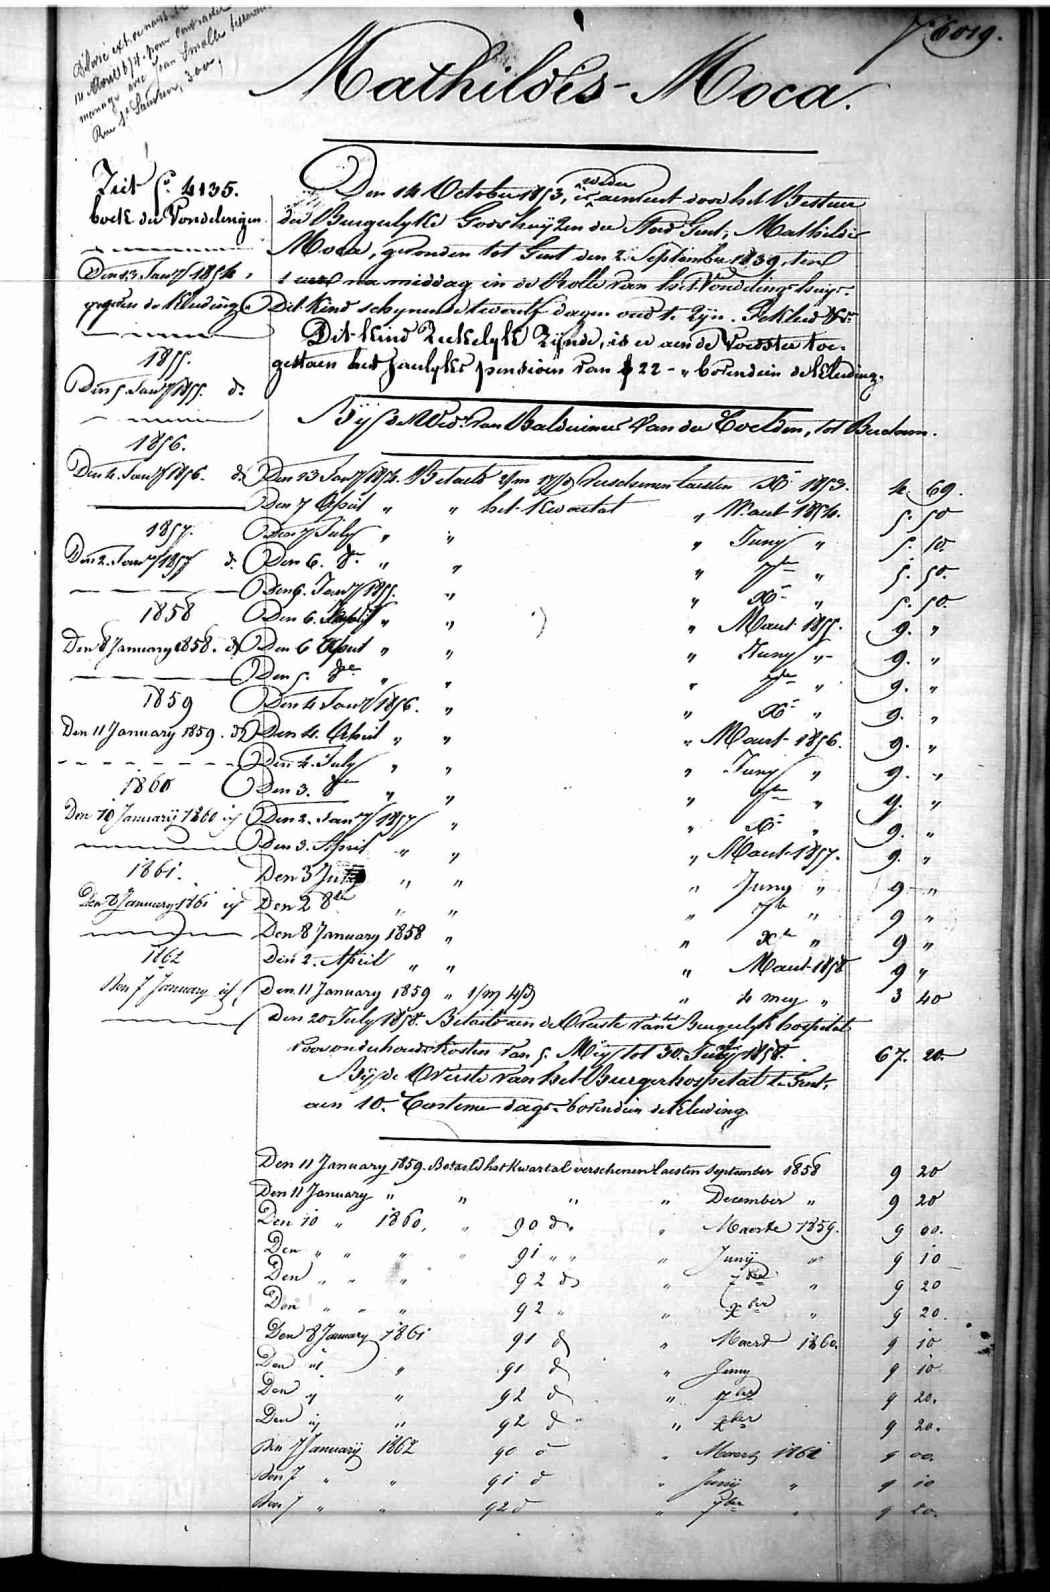 Fº 6019.
Délivré extr. de naiss. le
14 Août 1874. pour contracter
mariage avec Jean
Rue St Sauveur, 300,
Mathildis Moca.
Ziet Fº 4135.
boek der Vondelingen
Den 13 Jany 1854
gegeven de kleeding
1855.
Den 5 Jany 1855. dº
1856.
Den 4 Jany 1856. dº
1857.
Den 2. Jany 1857 dº
1858
Den 8 January 1858. dº
1859
Den 11 January 1859. dº
1860
Den 10 Januarij 1860 id
1861.
Den 8 January 1861 id
1862
Den 7 January id
Den 14 October 1853, is weder aenveert door het Bestuur
der Burgerlyke Godshuyzen der Stad Gent, Mathildis
Moca, gevonden tot Gent den 2 September 1839, ten
1 uren na middag in de Rolle van het Vondelingshuys.
Dit kind schynende twaelf dagen oud te Zyn. Gekleed
Dit kind Ziekelyk Zynde, is er aen de Voedster toe-
gestaen het jaerlyks pensioen van f 22 - " bovendien de kleeding.
Bij de Wed. van Balduinus Van der Coelden, tot Berchem.
Den 13 Jany 1854. Betaeld verschenen laesten Xbr 1853. 4. 69.
Den 7 April " " het kwartal " Maert 1854. 5. 50
Den 7 July " " " Juny " 5. 50.
Den 6. 8br " " " 7br " 5. 50.
Den 6. Jany 1855. " " Xbr " 5. 50.
Den 6. " " " Maert 1855. 9. "
Den 6 " " " Juny " 9. "
Den 5. 8bre " " " 7br " 9. "
Den 4 Jany 1856. " " Xbr " 9. "
Den 4. April " " " Maert 1856. 9. "
Den 4. July " " " Juny " 9. "
Den 3. 8bre " " " 7br " 9. "
Den 2. Jany 1857 " " Xbr " 9. "
Den 3. April " " " Maert 1857. 9. "
Den 3 July " " " Juny " 9 "
Den 2 8bre " " " 7br " 9 "
Den 8 January 1858 " " Xbr " 9 "
Den 2. April " " " Maert 1858 9 "
Den 11 January 1859 " " 4 mey " 3 40
Den 20 July 1858. Betaeld aen de Overste van het Burgerlyk hospitael
voor onderhoudskosten van 5. Mey tot 30. Juny 1858. 67. 20
Bij de Overste van het Burgerhospitael te Gent,
aen 10. Centimes dags bovendien de kleeding.
Den 11 January 1859. Betaeld het kwartal verschenen laesten September 1858 9 20
Den 11 January " " " " December " 9 20
Den 10 " 1860, " 90 d " Maerte 1859. 9 00.
Den " " " " 91 " " " Junij " 9 10
Den " " " 92 d " 7ber " 9 20
Den " " " 92 " " xber " 9 20.
Den 8 January 1861 91 d " Maert 1860. 9 10
Den id " 91 d " Juny 9 10.
Den ij " 92 d " 7ber 9 20.
Den ij " 92 d " " xber 9 20.
Den 7 Januarij 1862 90 d " Maert 1861 9 00.
Den 7 " " 91 d " Junij " 9 10
Den 7 " " 92 d " 7ber " 9 20.